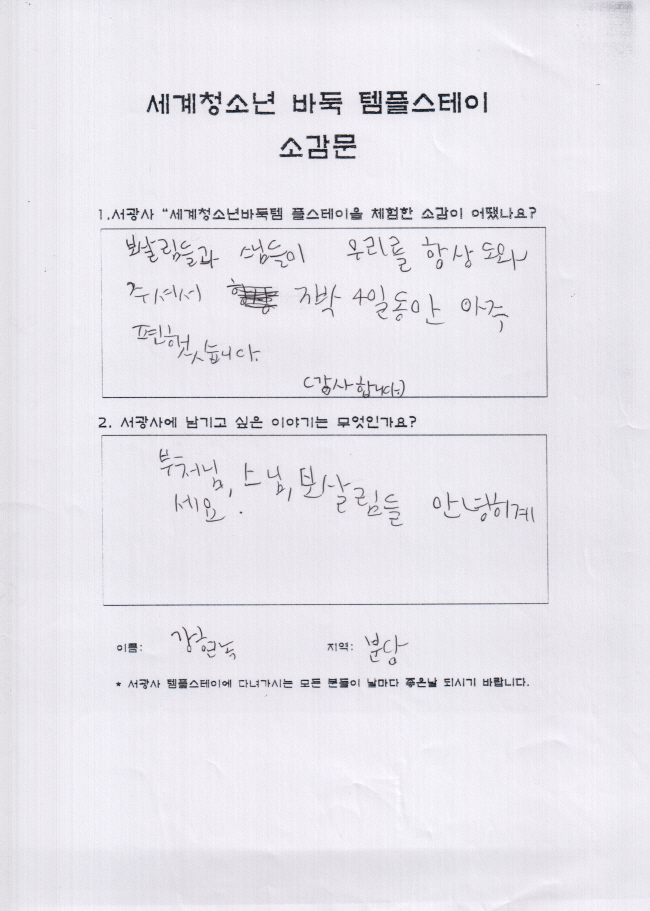 세계청소년 바둑 템플스테이
소감문
1.서광사 “세계청소년바둑템 플스테이을 체험한 소감이 어땠나요?
보살림들과 스님들이 우리를 항상 도와
주셔서 3박 4일동안 아주
편했습니다.
(감사합니다.)
2. 서광사에 남기고 싶은 이야기는 무엇인가요?
부처님, 스님, 보살림들 안녕히계
세요.
이름: 지역: 분당
* 서광사 템플스테이에 다녀가시는 모든 분들이 날마다 좋은날 되시기 바랍니다.